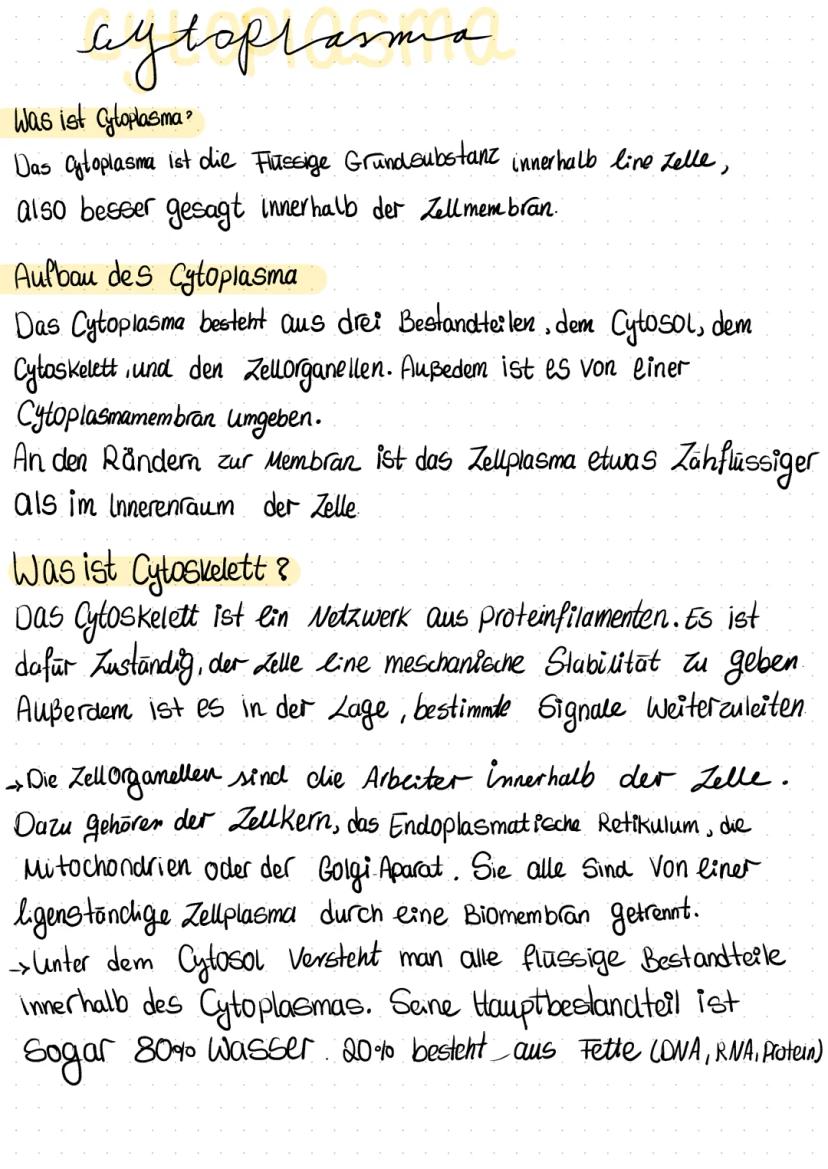 cytoplasma
Was ist Cytoplasma?
Das Cytoplasma ist die Flüssige Grundsubstanz innerhalb eine Zelle,
also besser gesagt innerhalb der Zellmembran.
Aufbau des Cytoplasma
Das Cytoplasma besteht aus drei Bestandteilen, dem Cytosol, dem
Cytoskelett, und den Zellorganellen. Außedem ist es von einer
Cytoplasmamembran umgeben.
An den Rändern zur Membran ist das Zellplasma etwas Zähflüssiger
als im Innerenraum der Zelle
Was ist Cytoskelett?
Das Cytoskelett ist ein Netzwerk aus Proteinfilamenten. Es ist
dafür Zuständig, der Zelle eine meschanische Stabilität zu geben
Außerdem ist es in der Lage, bestimmde Signale Weiterzuleiten
→ Die Zellorganellen sind die Arbeiter innerhalb der Zelle.
Dazu gehören der Zellkern, das Endoplasmatische Retikulum, die
Mitochondrien oder der Golgi-Aparat. Sie alle sind von einer
eigenständige Zellplasma durch eine Biomembran getrennt.
→ Unter dem Cytosol versteht man alle flüssige Bestandteile
innerhalb des Cytoplasmas. Seine Hauptbestandteil ist
Sogar 80% Wasser. 20% besteht aus Fette (DNA, RNA, Protein)